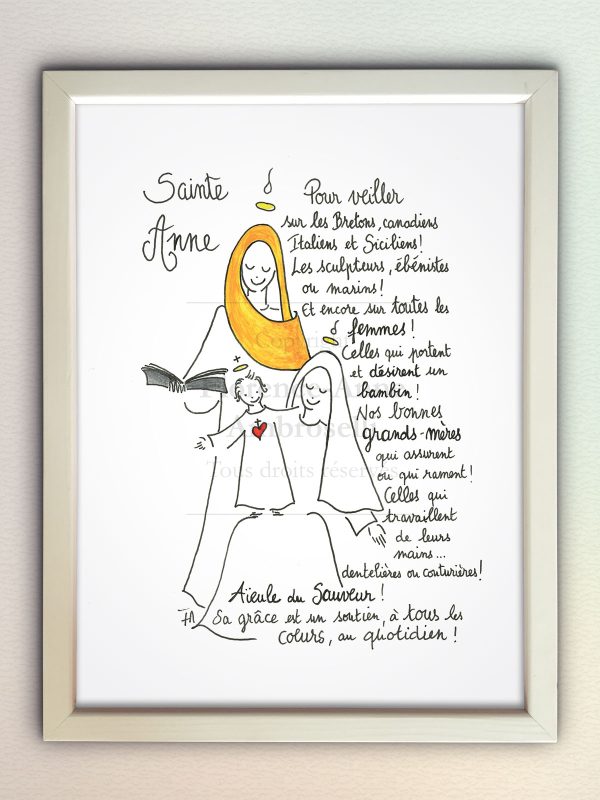 Sainte
Anne
Pour veiller
sur les Bretons, canadiens
Italiens et Siciliens!
Les sculpteurs, ébénistes
ou marins!
Et encore sur toutes les
femmes!
Celles qui portent
et désirent un
bambin!
Nos bonnes
grands-mères
qui assurent
ou qui rament!
Celles qui
travaillent
de leurs
mains...
dentelières ou couturières!
Aïeule du Sauveur!
Sa grâce est un soutien, à tous les
coeurs, au quotidien!
FA
Copyright
Florence-Anne
Ambroselli
Tous droits réservés